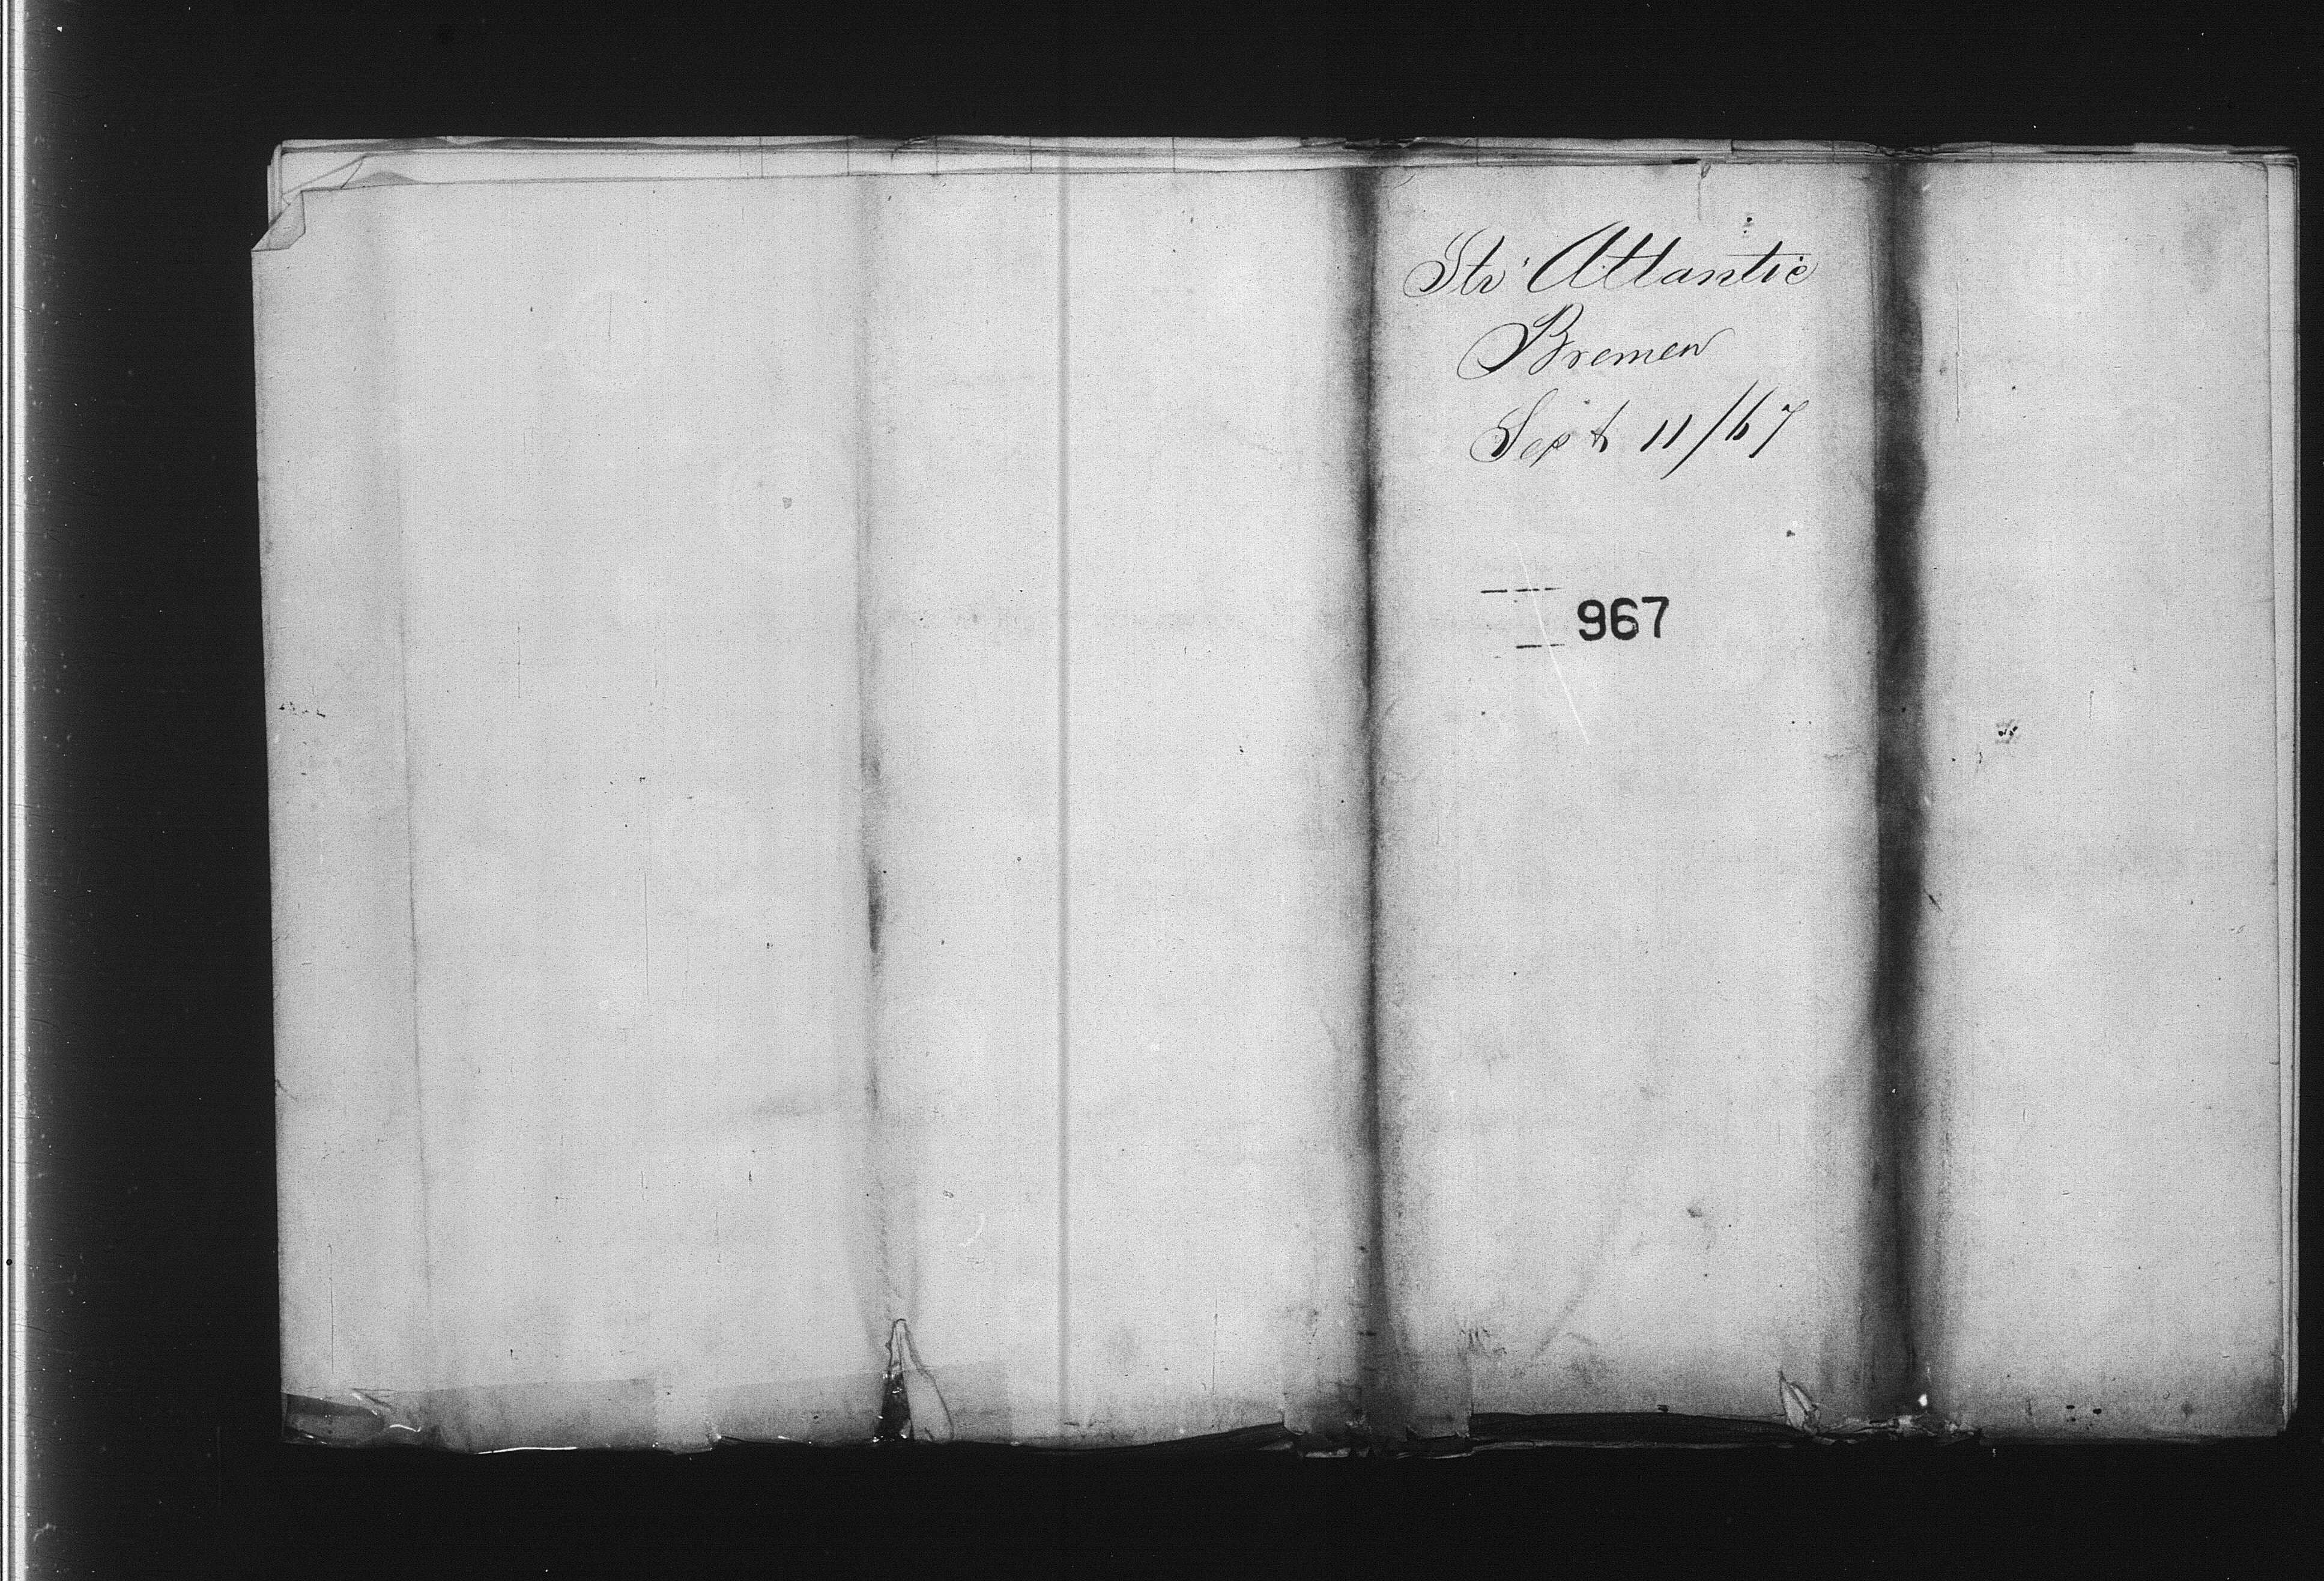 Str Atlantic
Bremen
Sept 11/67
967